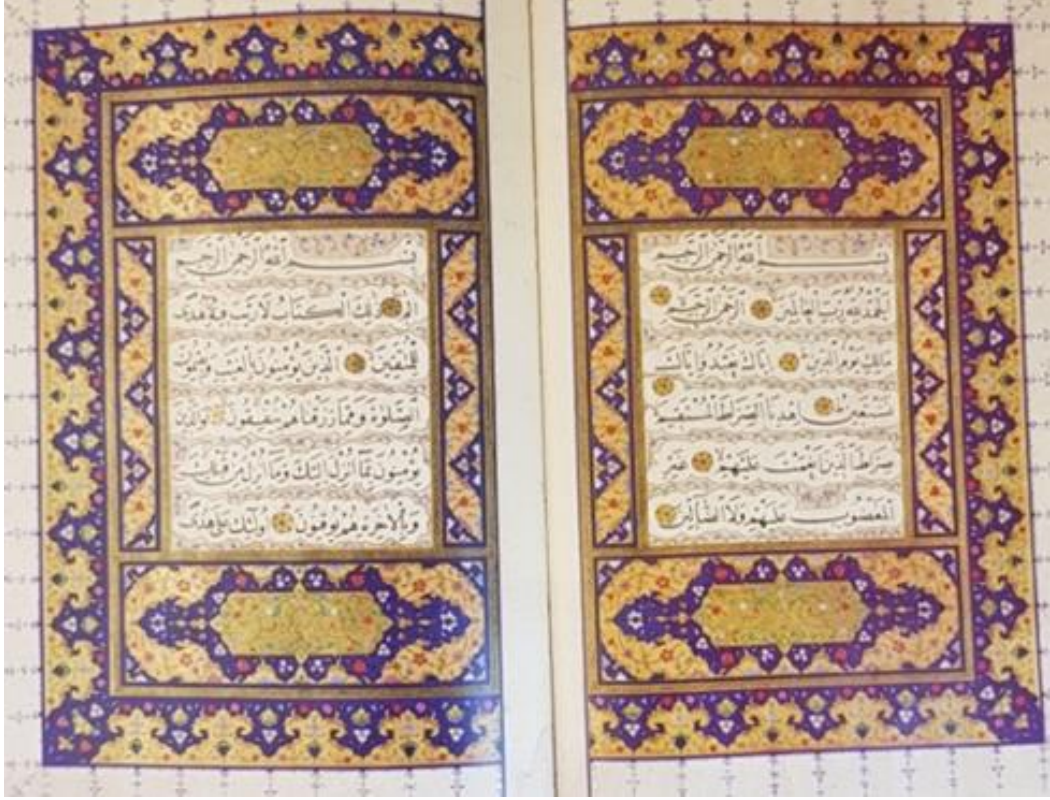 بِسْمِ ٱللَّهِ ٱلرَّحْمٰنِ ٱلرَّحِيمِ
اَلْحَمْدُ لِلّٰهِ رَبِّ الْعَالَمِينَ ۝ اَلرَّحْمٰنِ الرَّحِيمِ ۝
مَالِكِ يَوْمِ الدِّينِ ۝ إِيَّاكَ نَعْبُدُ وَإِيَّاكَ
نَسْتَعِينُ ۝ اِهْدِنَا الصِّرَاطَ الْمُسْتَقِيمَ ۝
صِرَاطَ الَّذِينَ أَنْعَمْتَ عَلَيْهِمْ ۝ غَيْرِ
الْمَغْضُوبِ عَلَيْهِمْ وَلَا الضَّالِّينَ ۝
بِسْمِ ٱللَّهِ ٱلرَّحْمٰنِ ٱلرَّحِيمِ
الم ۝ ذٰلِكَ الْكِتَابُ لَا رَيْبَ فِيهِ هُدًى
لِلْمُتَّقِينَ ۝ الَّذِينَ يُؤْمِنُونَ بِالْغَيْبِ وَيُقِيمُونَ
الصَّلٰوةَ وَمِمَّا رَزَقْنَاهُمْ يُنْفِقُونَ ۝ وَالَّذِينَ
يُؤْمِنُونَ بِمَا أُنْزِلَ إِلَيْكَ وَمَا أُنْزِلَ مِنْ قَبْلِكَ
وَبِالْآخِرَةِ هُمْ يُوقِنُونَ ۝ أُولٰئِكَ عَلٰى هُدًى